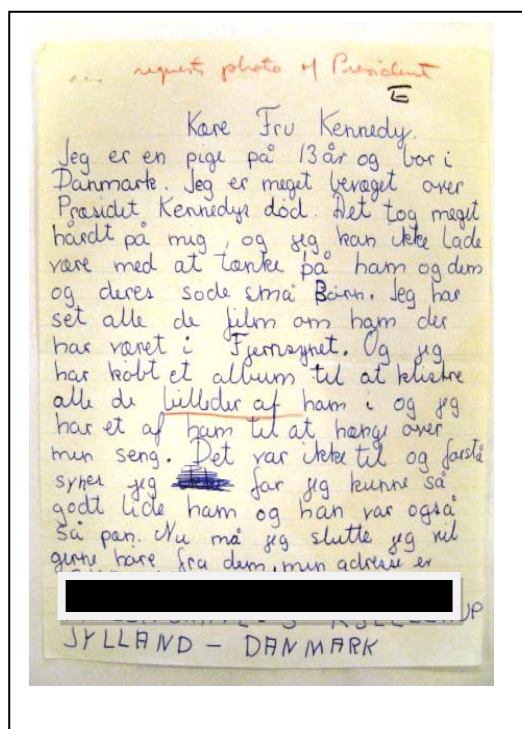 ... requests photo of President
E
Kære Fru Kennedy.
Jeg er en pige på 13 år og bor i
Danmark. Jeg er meget bevæget over
Præsidet Kennedys død. Det tog meget
hårdt på mig, og jeg kan ikke lade
være med at tænke på ham og dem
og deres søde små Børn. Jeg har
set alle de film om ham der
har været i Fjernsynet. Og jeg
har købt et album til at klistre
alle de billeder af ham i og jeg
har et af ham til at hænge over
min seng. Det var ikke til og forstå
synes jeg for jeg kunne så
godt lide ham og han var også
så pæn. Nu må jeg slutte jeg vil
gerne høre fra dem, min adresse er
JYLLAND - DANMARK